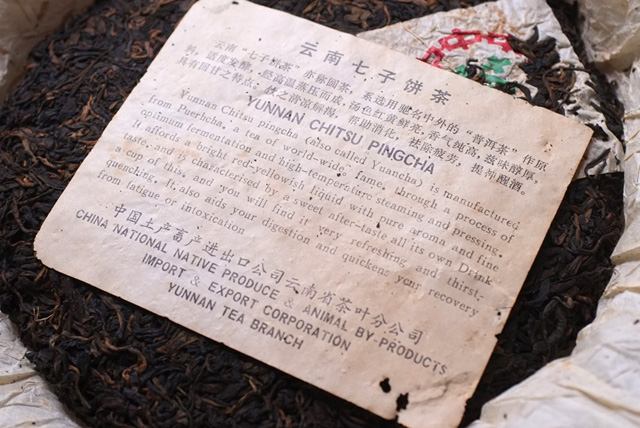 云南七子饼茶
云南“七子饼茶”亦称圆茶，系选用驰名中外的“普洱茶”作原
料，适度发酵，经高温蒸压而成，汤色红黄鲜亮，香气纯高，滋味醇厚，
具有回甘之特点，饮之清凉解渴，帮助消化，祛除疲劳，提神醒酒。
YUNNAN CHITSU PINGCHA
Yunnan Chitsu pingcha (also called Yuancha) is manufactured
from Puerhcha, a tea of world-wide fame, through a process of
optimum fermentation and high-temperature steaming and pressing.
It affords a bright red-yellowish liquid with pure aroma and fine
taste, and is characterised by a sweet after-taste all its own Drink
a cup of this, and you will find it very refreshing and thirst-
quenching. It also aids your digestion and quickens your recovery
from fatigue or intoxication
中国土产畜产进出口公司云南省茶叶分公司
CHINA NATIONAL NATIVE PRODUCE & ANIMAL BY-PRODUCTS
IMPORT & EXPORT CORPORATION
YUNNAN TEA BRANCH